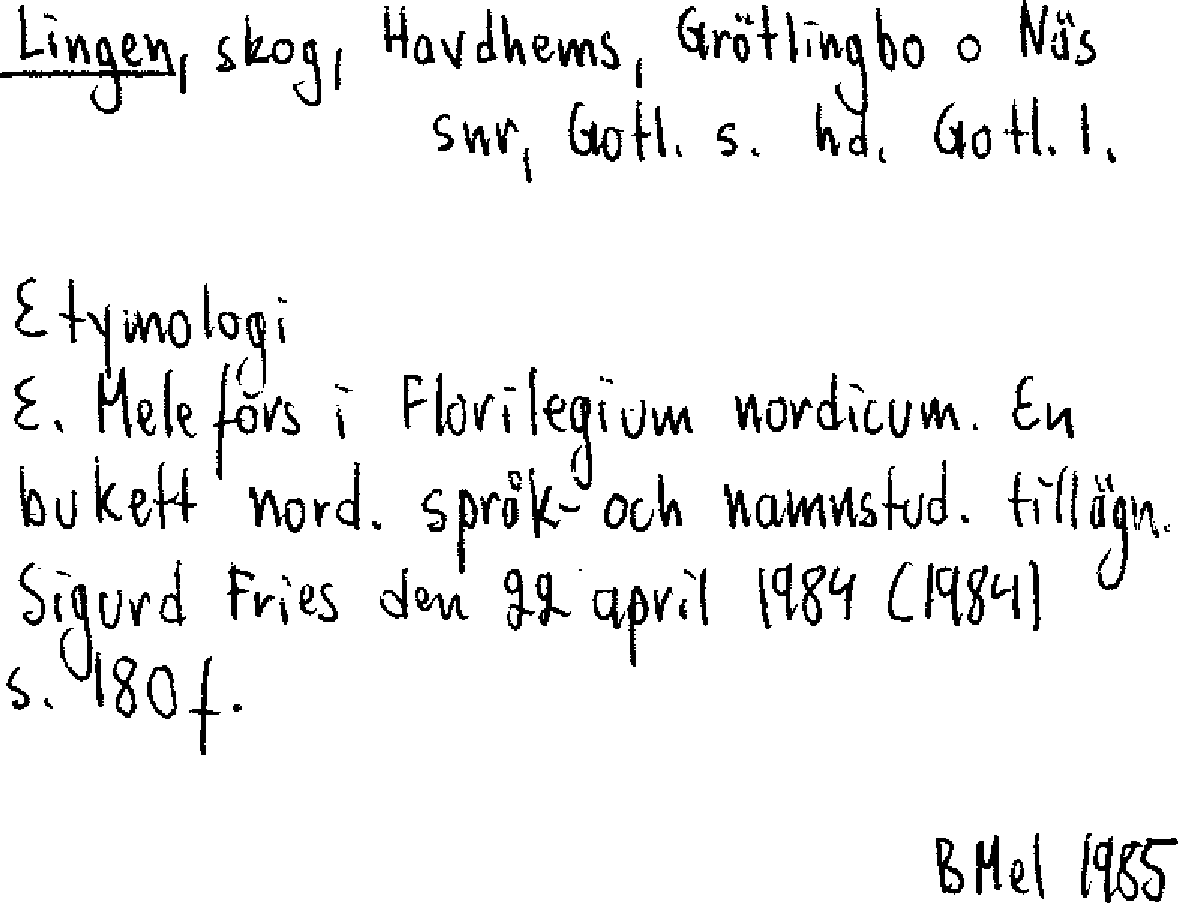 Lingen, skog, Havdhems, Grötlingbo o Näs
snr, Gotl. s. hd. Gotl. l.
Etymologi
E. Melefors i Florilegium nordicum. En
bukett nord. språk- och namnstud. tillägn.
Sigurd Fries den 22 april 1984 (1984)
s. 180 f.
BMel 1985